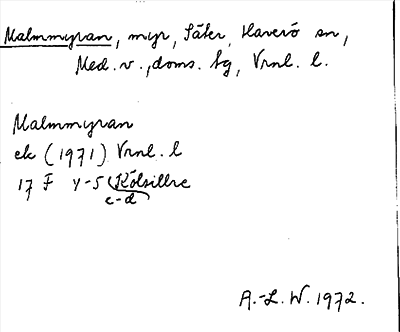 Malmmyran, myr, Säter, Haverö sn,
Med. v., doms. tg, Vrnl. l.
Malmmyran
ek (1971) Vrnl. l
17 F Y-5 (Kölsillre
c-d
A.-L. W. 1972.